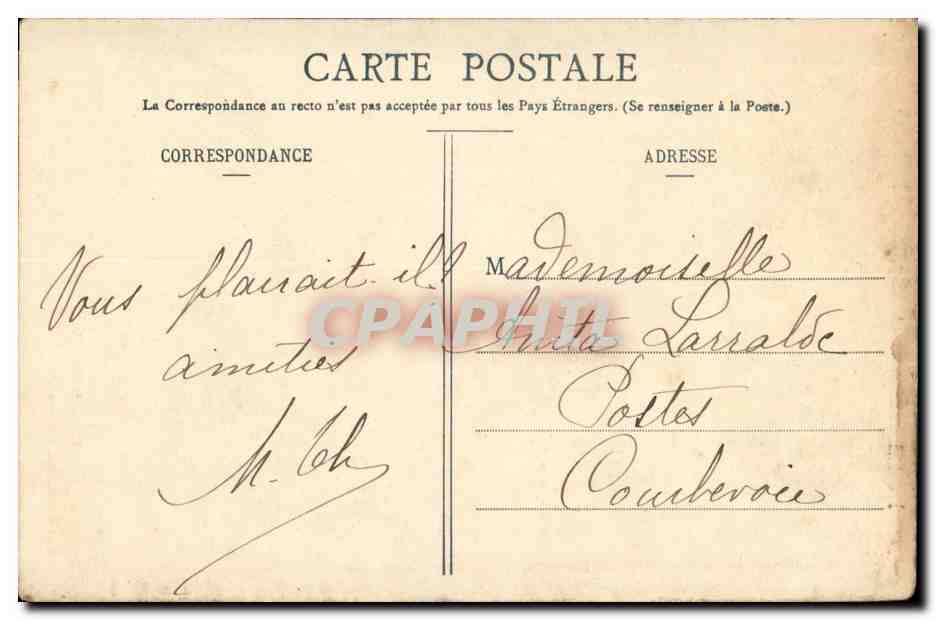 CARTE POSTALE
La Correspondance au recto n'est pas acceptée par tous les Pays Étrangers. (Se renseigner à la Poste.)
CORRESPONDANCE
Vous plairait-il?
amitiés
M. Th
ADRESSE
Mademoiselle
Anita Larralde
Postes
Courbevoie
CPAPHIL